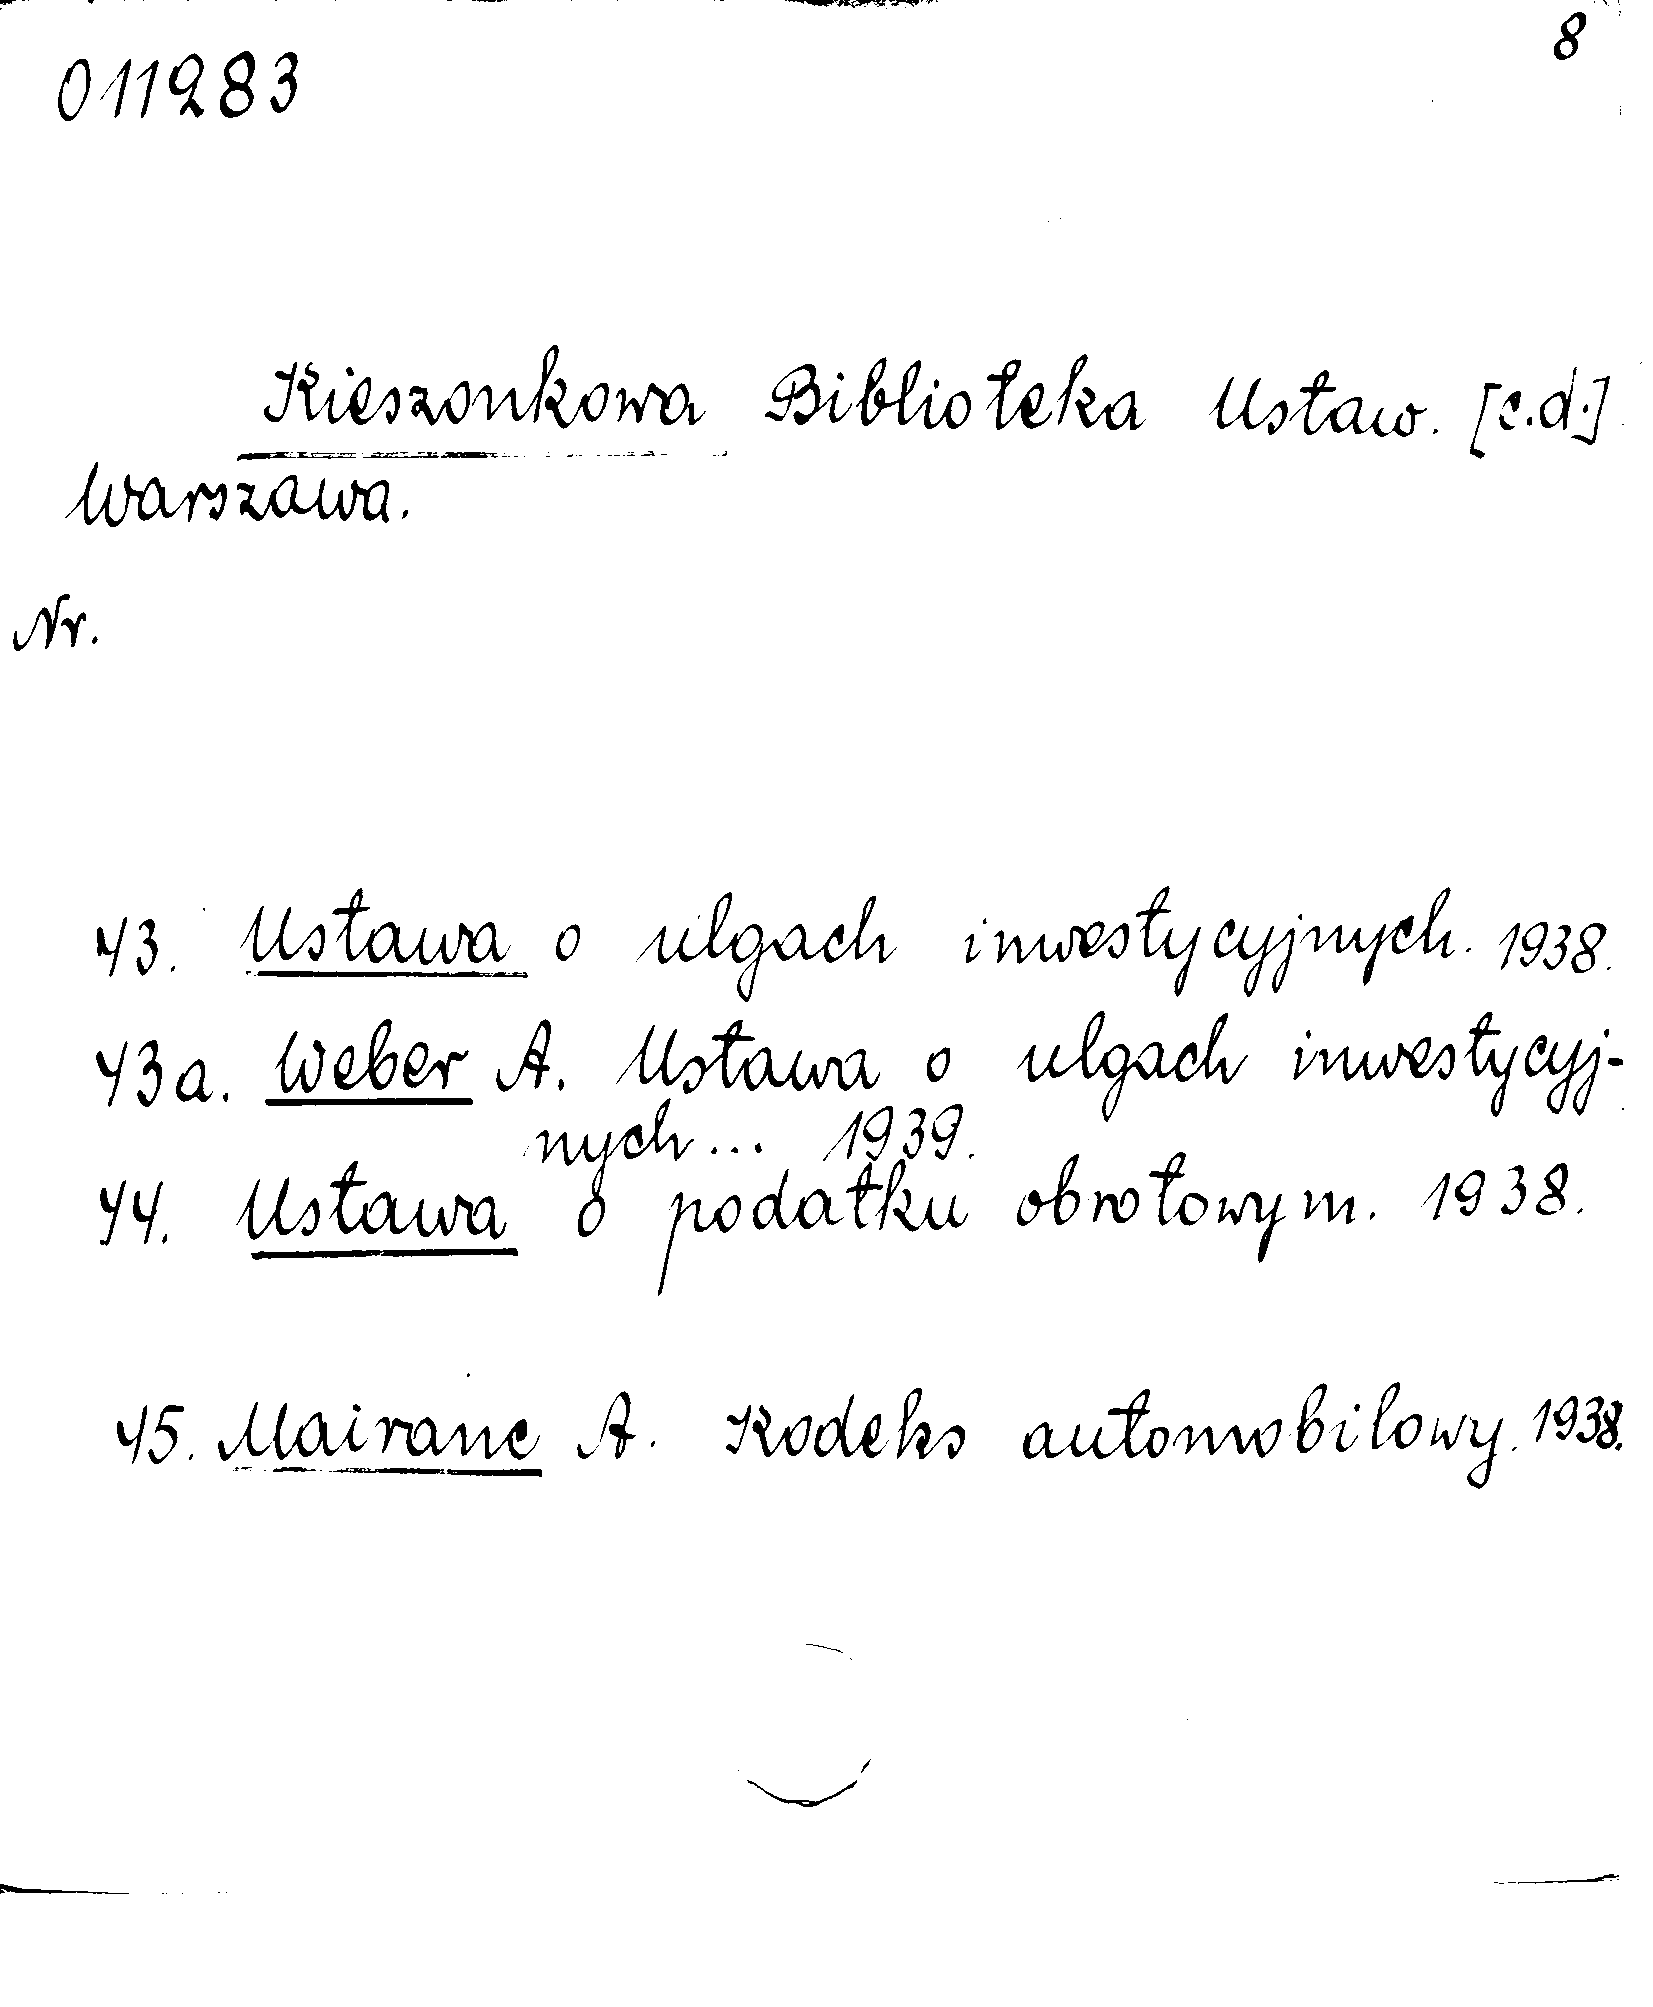 8
011283
Kieszonkowa Biblioteka Ustaw. [c.d.]
Warszawa.
Nr.
43. Ustawa o ulgach inwestycyjnych. 1938.
43a. Weber A. Ustawa o ulgach inwestycyj-
nych... 1939.
44. Ustawa o podatku obrotowym. 1938.
45. Mairane A. Kodeks automobilowy. 1938.